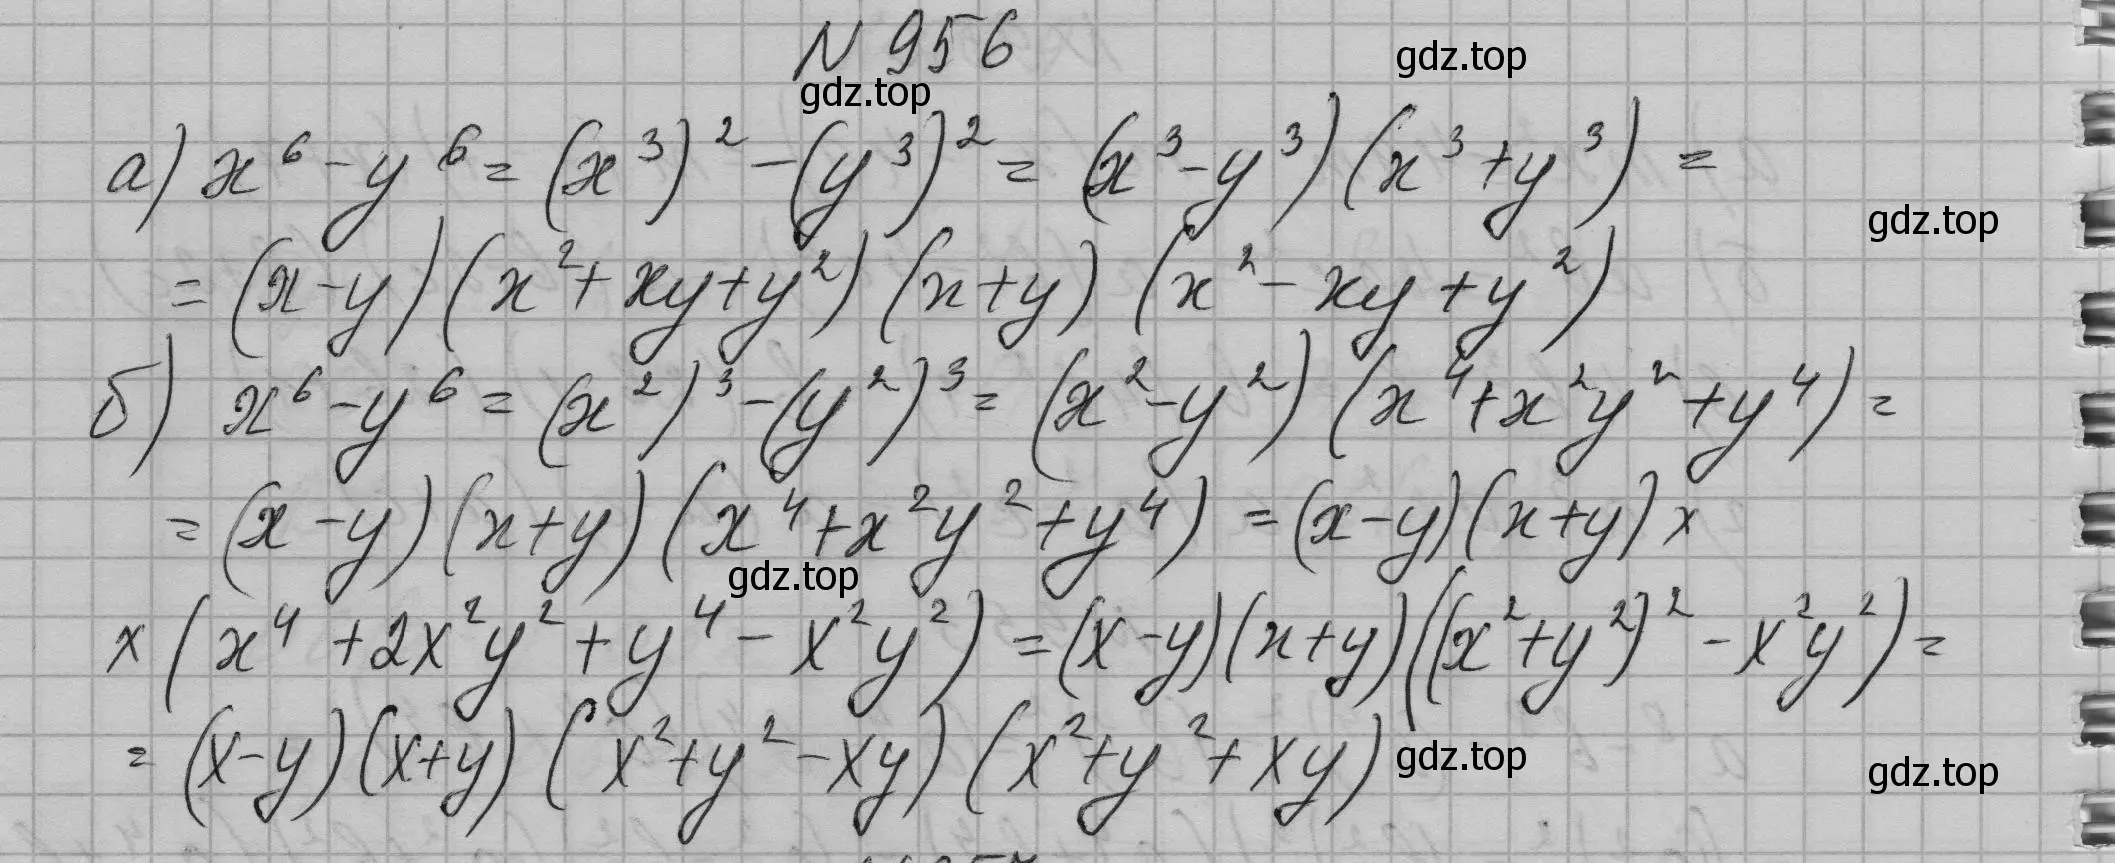 N 956
gdz.top
gdz.top
а) x⁶ - y⁶ = (x³)² - (y³)² = (x³ - y³)(x³ + y³) =
gdz.top
= (x - y)(x² + xy + y²)(x + y)(x² - xy + y²)
б) x⁶ - y⁶ = (x²)³ - (y²)³ = (x² - y²)(x⁴ + x²y² + y⁴) =
= (x - y)(x + y)(x⁴ + x²y² + y⁴) = (x - y)(x + y) ×
gdz.top
× (x⁴ + 2x²y² + y⁴ - x²y²) = (x - y)(x + y)((x² + y²)² - x²y²) =
= (x - y)(x + y)(x² + y² - xy)(x² + y² + xy)
gdz.top
gdz.top